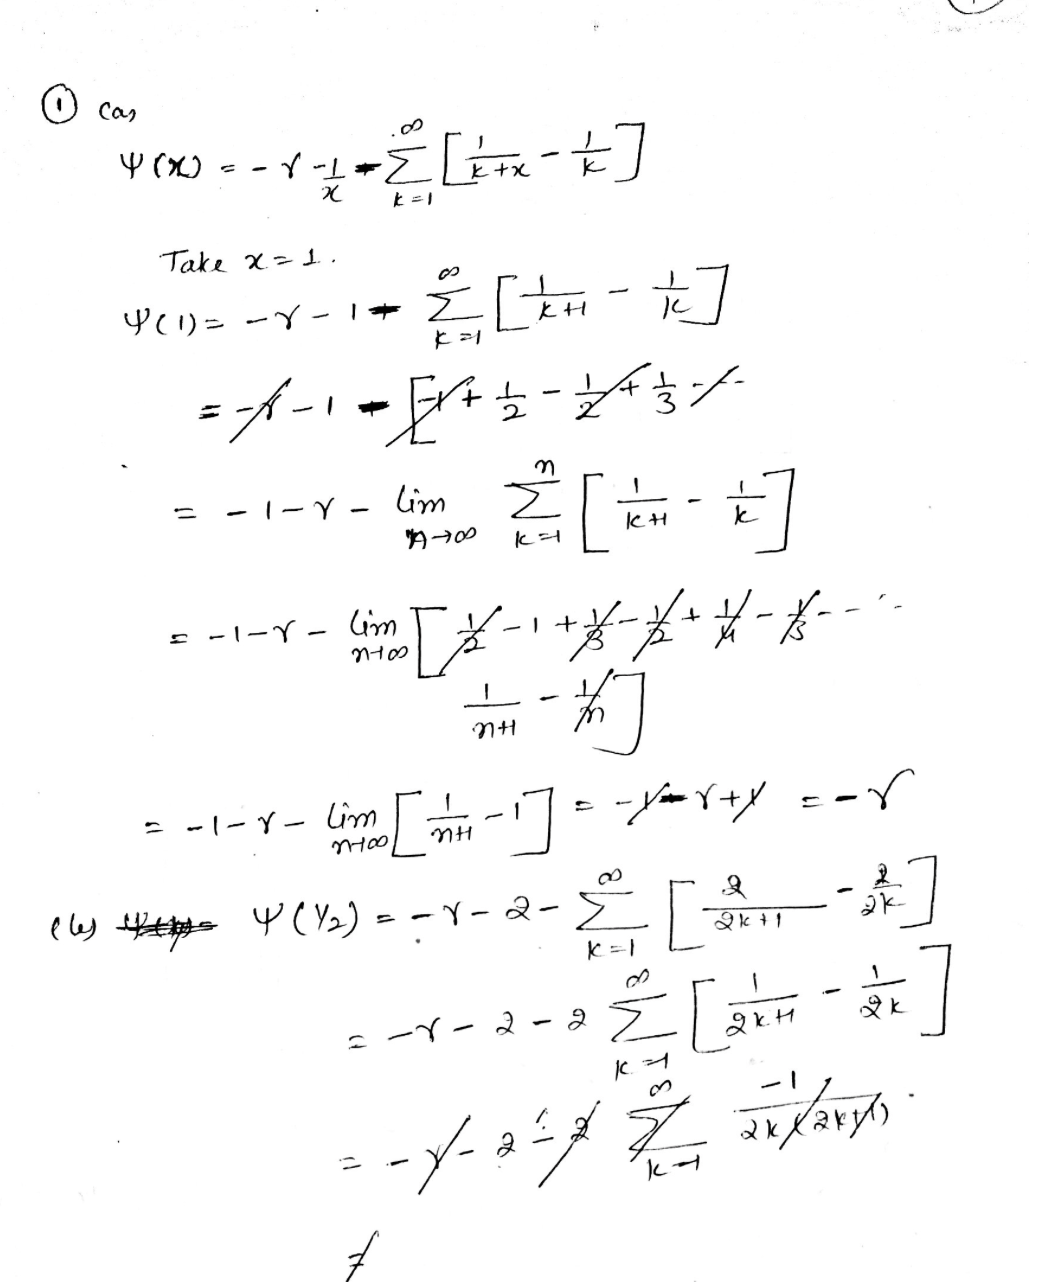 ① (a)
Ψ(x) = -γ - 1/x - ∑_{k=1}^{∞} [1/(k+x) - 1/k]
Take x = 1.
Ψ(1) = -γ - 1 - ∑_{k=1}^{∞} [1/(k+1) - 1/k]
= -γ - 1 - [-1 + 1/2 - 1/2 + 1/3 - --
= -1 - γ - lim_{n→∞} ∑_{k=1}^{n} [1/(k+1) - 1/k]
= -1 - γ - lim_{n→∞} [1/2 - 1 + 1/3 - 1/2 + 1/4 - 1/3 - - - -
1/(n+1) - 1/n]
= -1 - γ - lim_{n→∞} [1/(n+1) - 1] = -1 - γ + 1 = -γ
(b) Ψ(1/2) = -γ - 2 - ∑_{k=1}^{∞} [2/(2k+1) - 2/2k]
= -γ - 2 - 2 ∑_{k=1}^{∞} [1/(2k+1) - 1/2k]
= -γ - 2 - 2 ∑_{k=1}^{∞} -1/(2k(2k+1)).